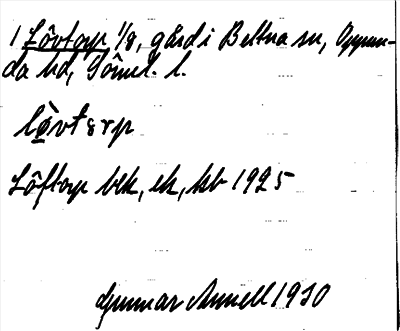 1 Lövtorp 1/8, gård i Bettna sn, Oppun-
da hd, Söml. l.
lövtərp
Löftorp blk, ek, hb 1925
Gunnar Annell 1930